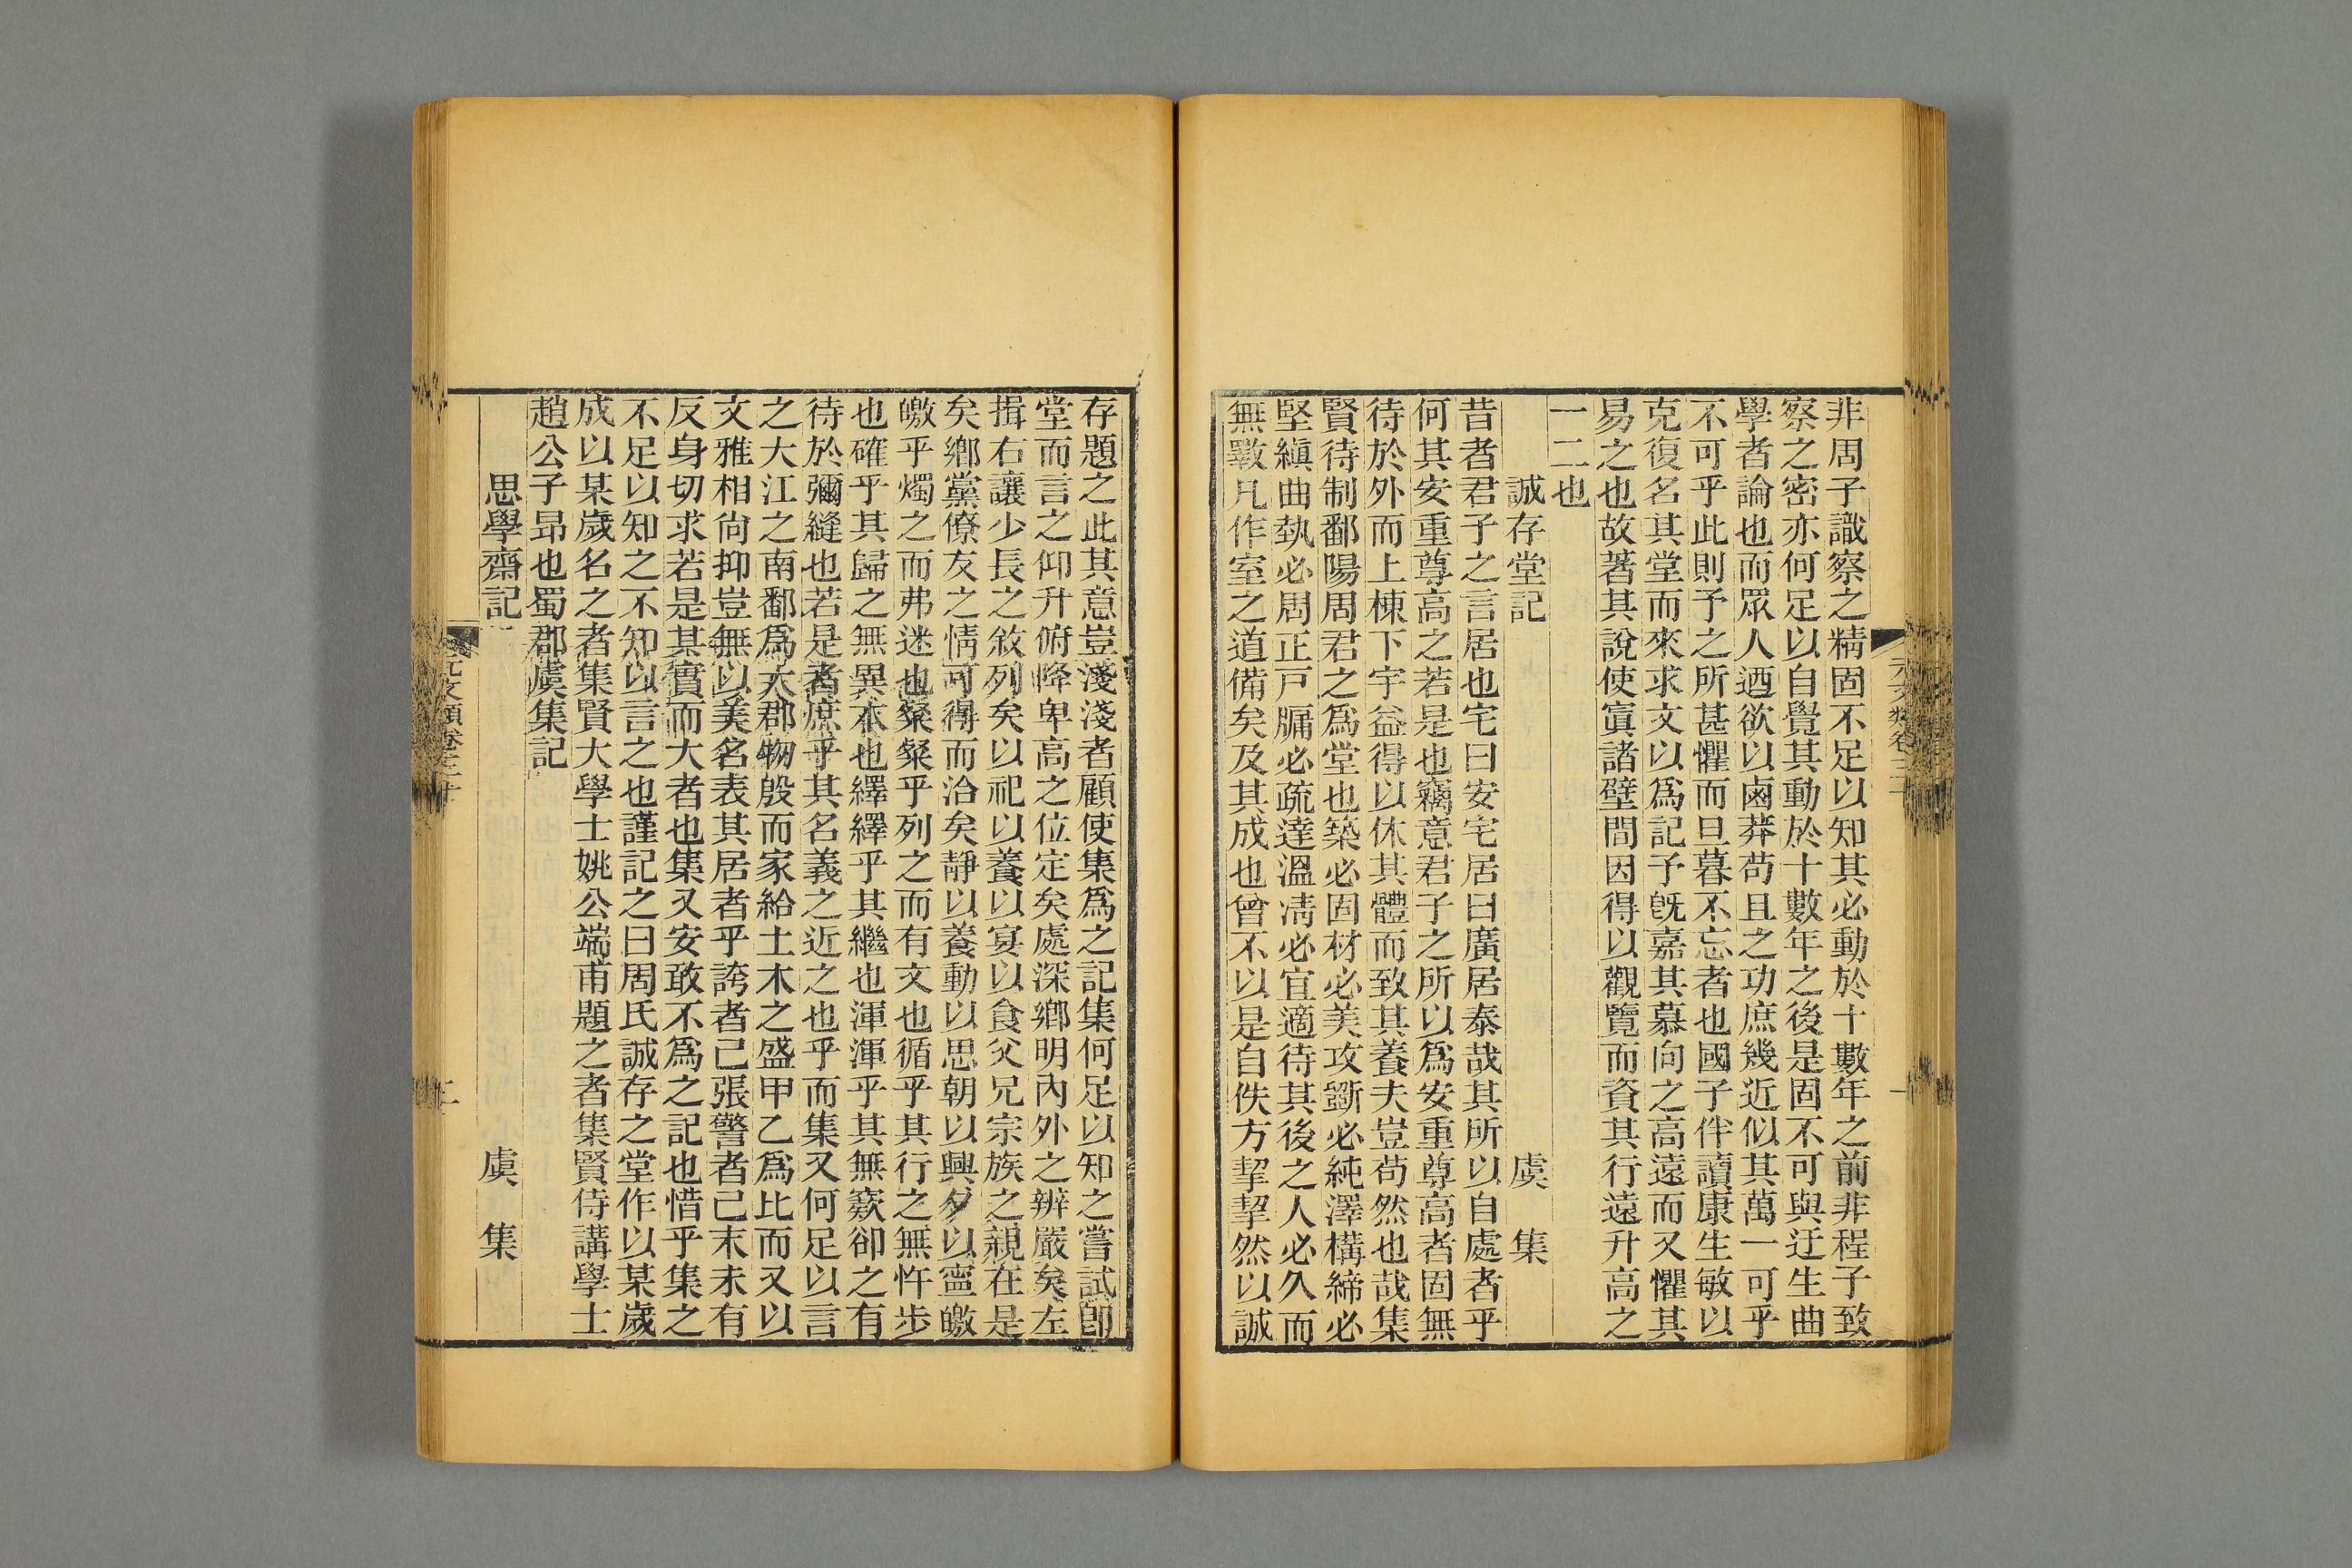 非周子識察之精固不足以知其必動於十數年之前非程子致
察之密亦何足以自覺其動於十數年之後是固不可與迂生曲
學者論也而眾人迺欲以鹵莽苟且之功庶幾近似其萬一可乎
不可乎此則予之所甚懼而旦暮不忘者也國子伴讀康生敏以
克復名其堂而來求文以爲記予旣嘉其慕向之高遠而又懼其
易之也故著其說使寘諸壁間因得以觀覽而資其行遠升高之
一二也
誠存堂記　虞集
昔者君子之言居也宅曰安宅居曰廣居泰哉其所以自處者乎
何其安重尊高之若是也竊意君子之所以爲安重尊高者固無
待於外而上棟下宇益得以休其體而致其養夫豈苟然也哉集
賢待制鄱陽周君之爲堂也築必固材必美攻斲必純澤構締必
堅縝曲埶必周正戸牖必疏達溫凊必宜適待其後之人必久而
無斁凡作室之道備矣及其成也曾不以是自佚方挈挈然以誠
存題之此其意豈淺淺者顧使集爲之記集何足以知之嘗試卽
堂而言之仰升俯降卑高之位定矣處深鄉明內外之辨嚴矣左
揖右讓少長之敘列矣以祀以養以宴以食父兄宗族之親在是
矣鄉黨僚友之情可得而洽矣靜以養動以思朝以興夕以寧皦
皦乎燭之而弗迷也粲粲乎列之而有文也循乎其行之無忤步
也確乎其歸之無異本也繹繹乎其繼也渾渾乎其無窾卻之有
待於彌縫也若是者庶乎其名義之近之也乎而集又何足以言
之大江之南鄱爲大郡物殷而家給土木之盛甲乙爲比而又以
文雅相尙抑豈無以美名表其居者乎誇者己張警者己末未有
反身切求若是其實而大者也集又安敢不爲之記也惜乎集之
不足以知之不知以言之也謹記之曰周氏誠存之堂作以某歲
成以某歲名之者集賢大學士姚公端甫題之者集賢侍講學士
趙公子昂也蜀郡虞集記
思學齋記　虞集
元文類卷三十
二